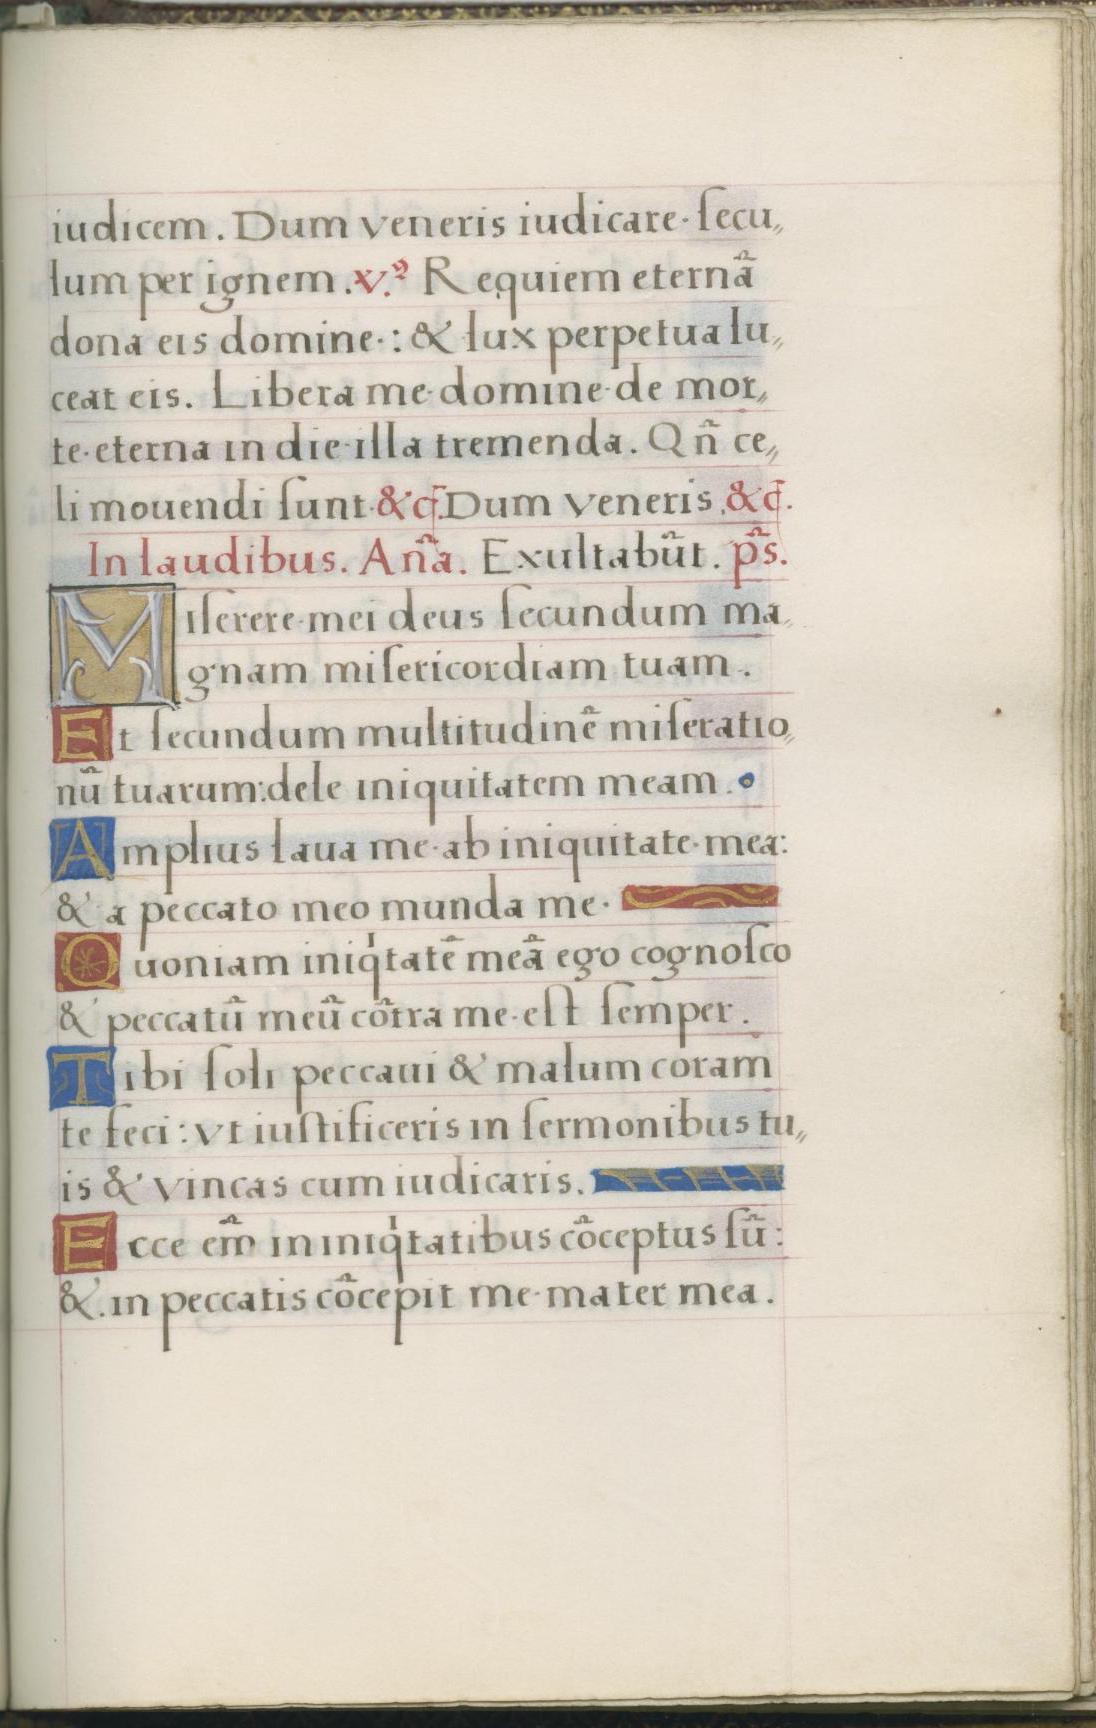 iudicem. Dum veneris iudicare· ſecu„
lum per ignem .v.ꝰ Requiem eternã
dona eis domine·: & lux perpetua lu„
ceat eis. Libera me·domine·de mor„
te·eterna in die·illa tremenda. Qñ ce„
li mouendi ſunt·&c̃. Dum veneris .&c̃.
In laudibus. Añа. Exultabũt. p̃s.
Miſerere·mei deus ſecundum ma„
gnam miſericordiam tuam·.
Et ſecundum multitudinẽ miſeratio„
nũ tuarum:dele iniquitatem meam.
Amplius laua me·ab iniquitate·mea:
& a peccato meo munda me·
Quoniam iniqͥtatẽ meã ego cognoſco
& peccatũ meũ cõtra me·eſt ſemper.
Tibi ſoli peccaui & malum coram
te feci: vt iuſtificeris in ſermonibus tu„
is & vincas cum iudicaris.
Ecce em̃ in iniqͥtatibus cõceptus ſũ:
&.in peccatis cõcepit me·mater mea.